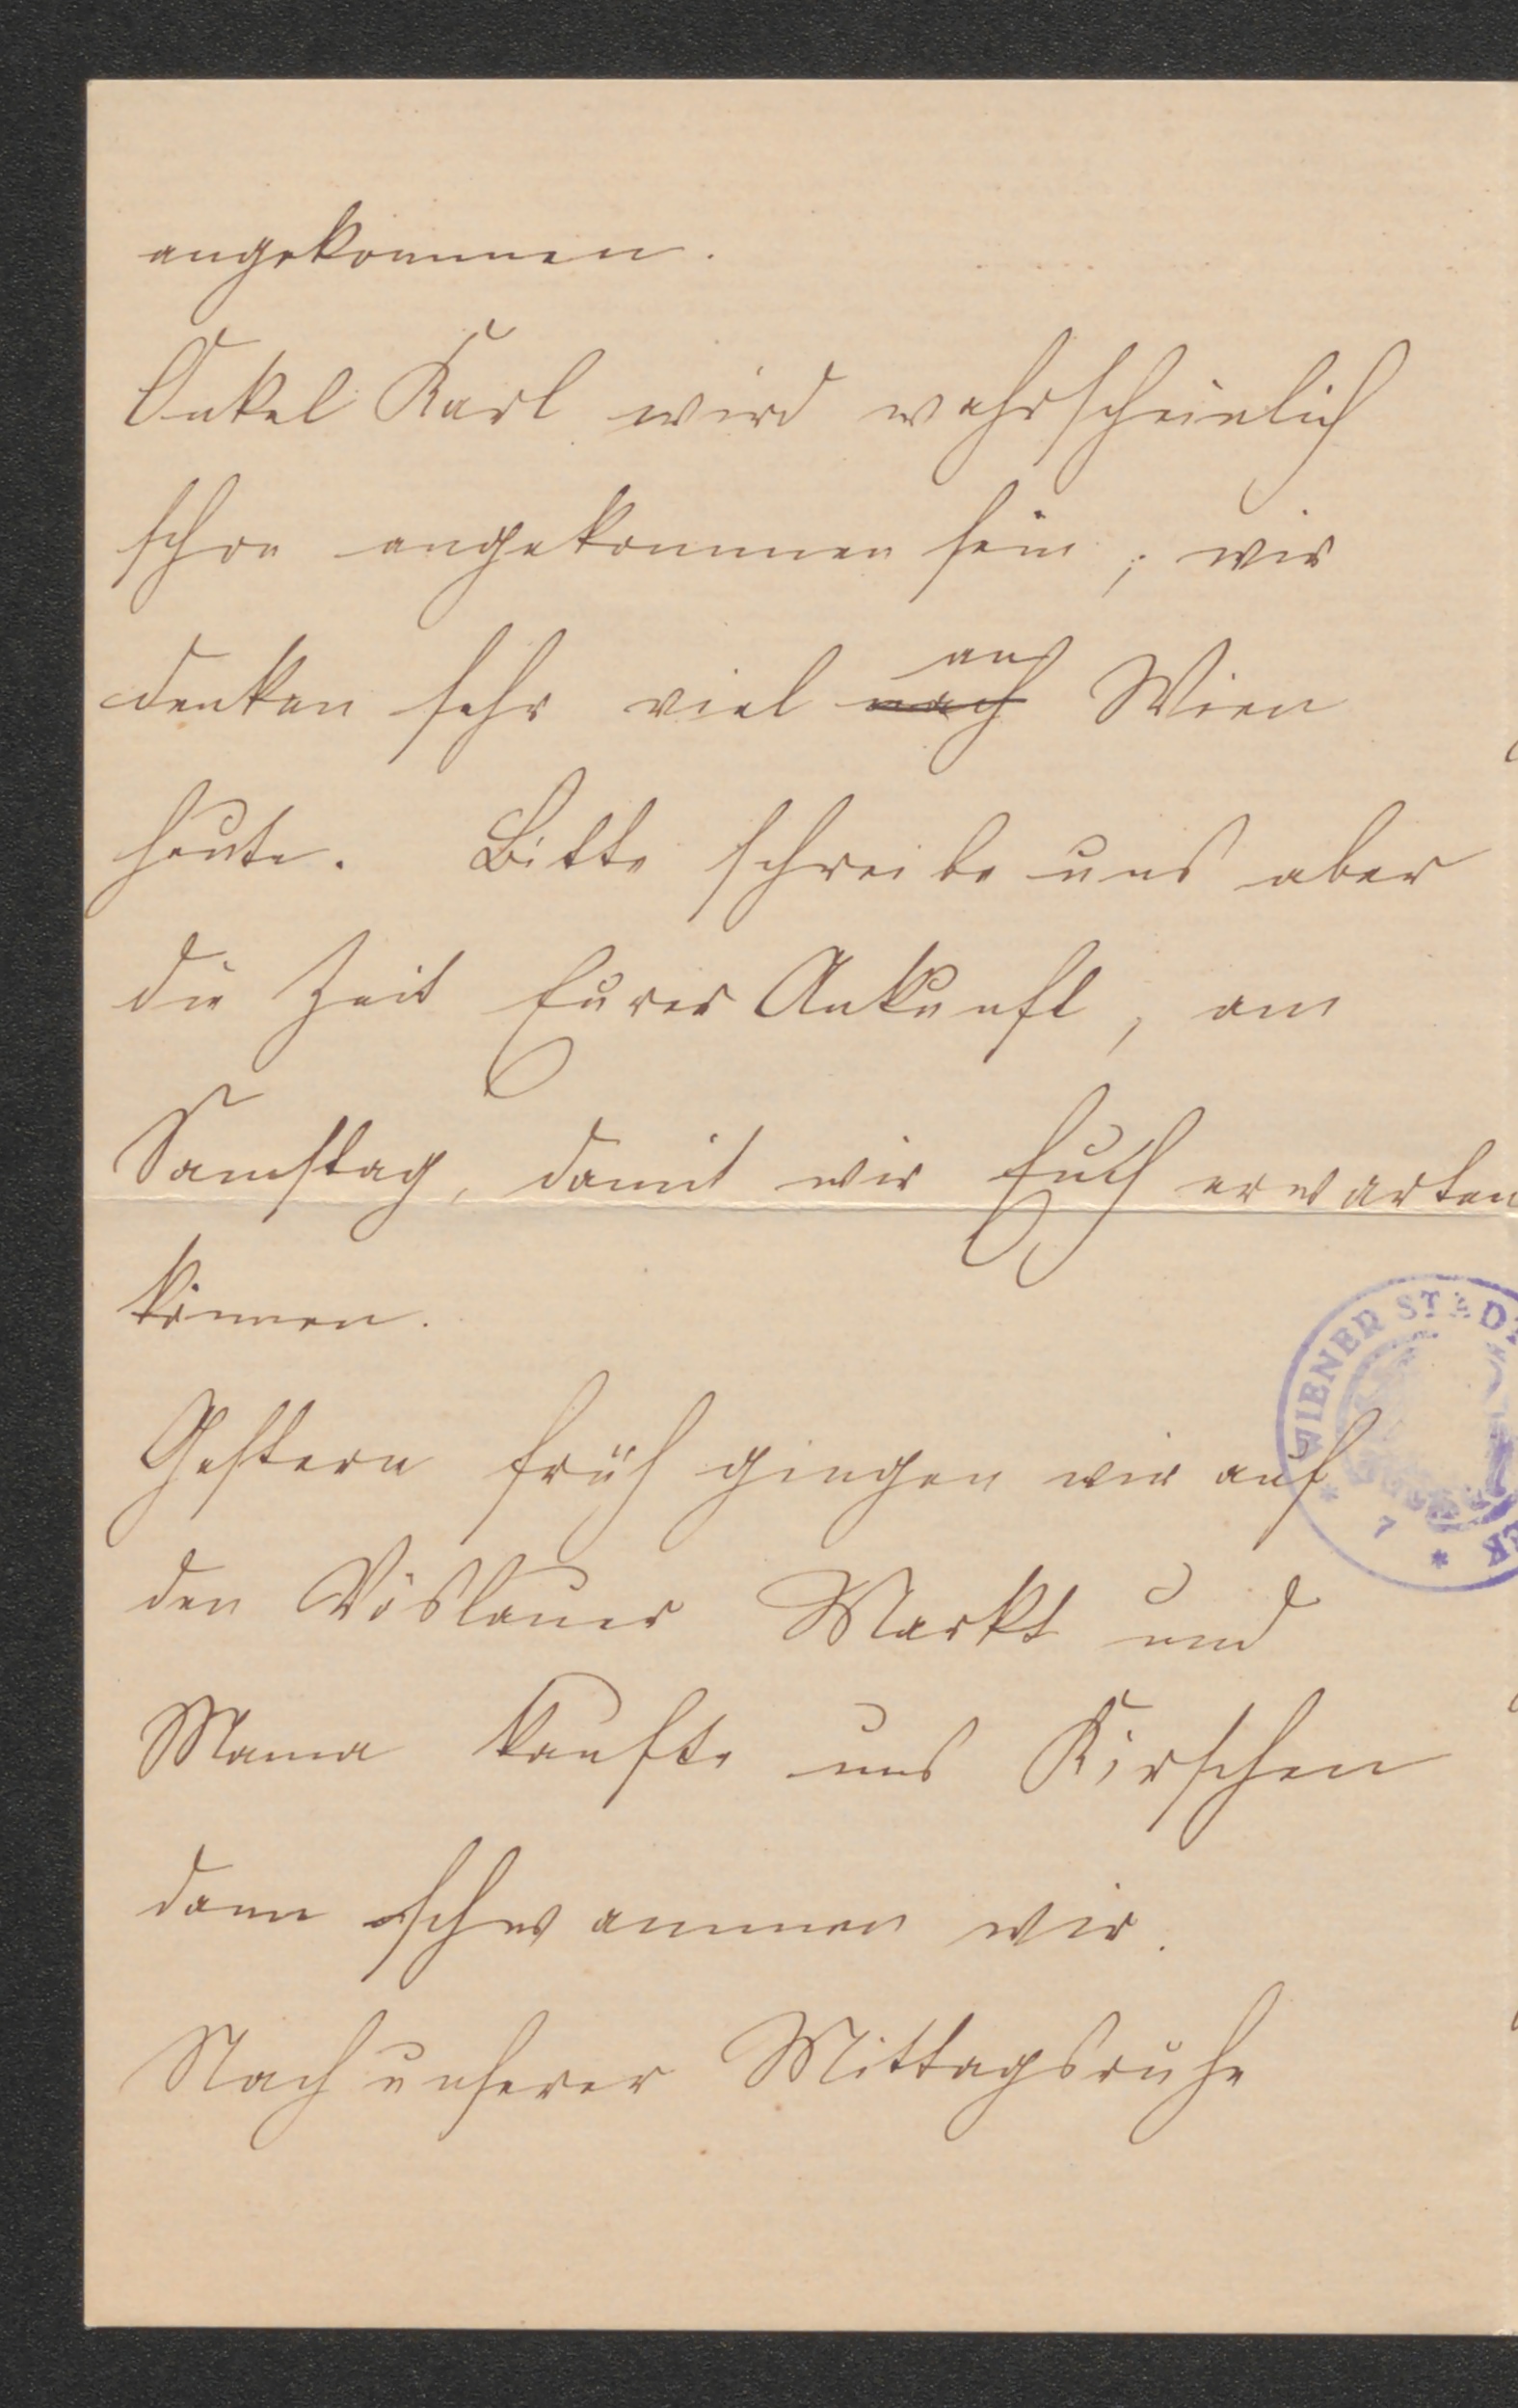 angekommen.
Onkel Karl wird wahrscheinlich
schon angekommen sein; wir
an
denken sehr viel nach Wien
heute. Bitte schreibe uns aber
die Zeit Eurer Ankunft, am
Samstag, damit wir Euch erwarten
können.
WIENER STADT
Gestern früh gingen wir auf
* 7 *
den Vöslauer Markt und
Mama kaufte uns Kirschen
dann schwammen wir.
Nach unserer Mittagsruhe